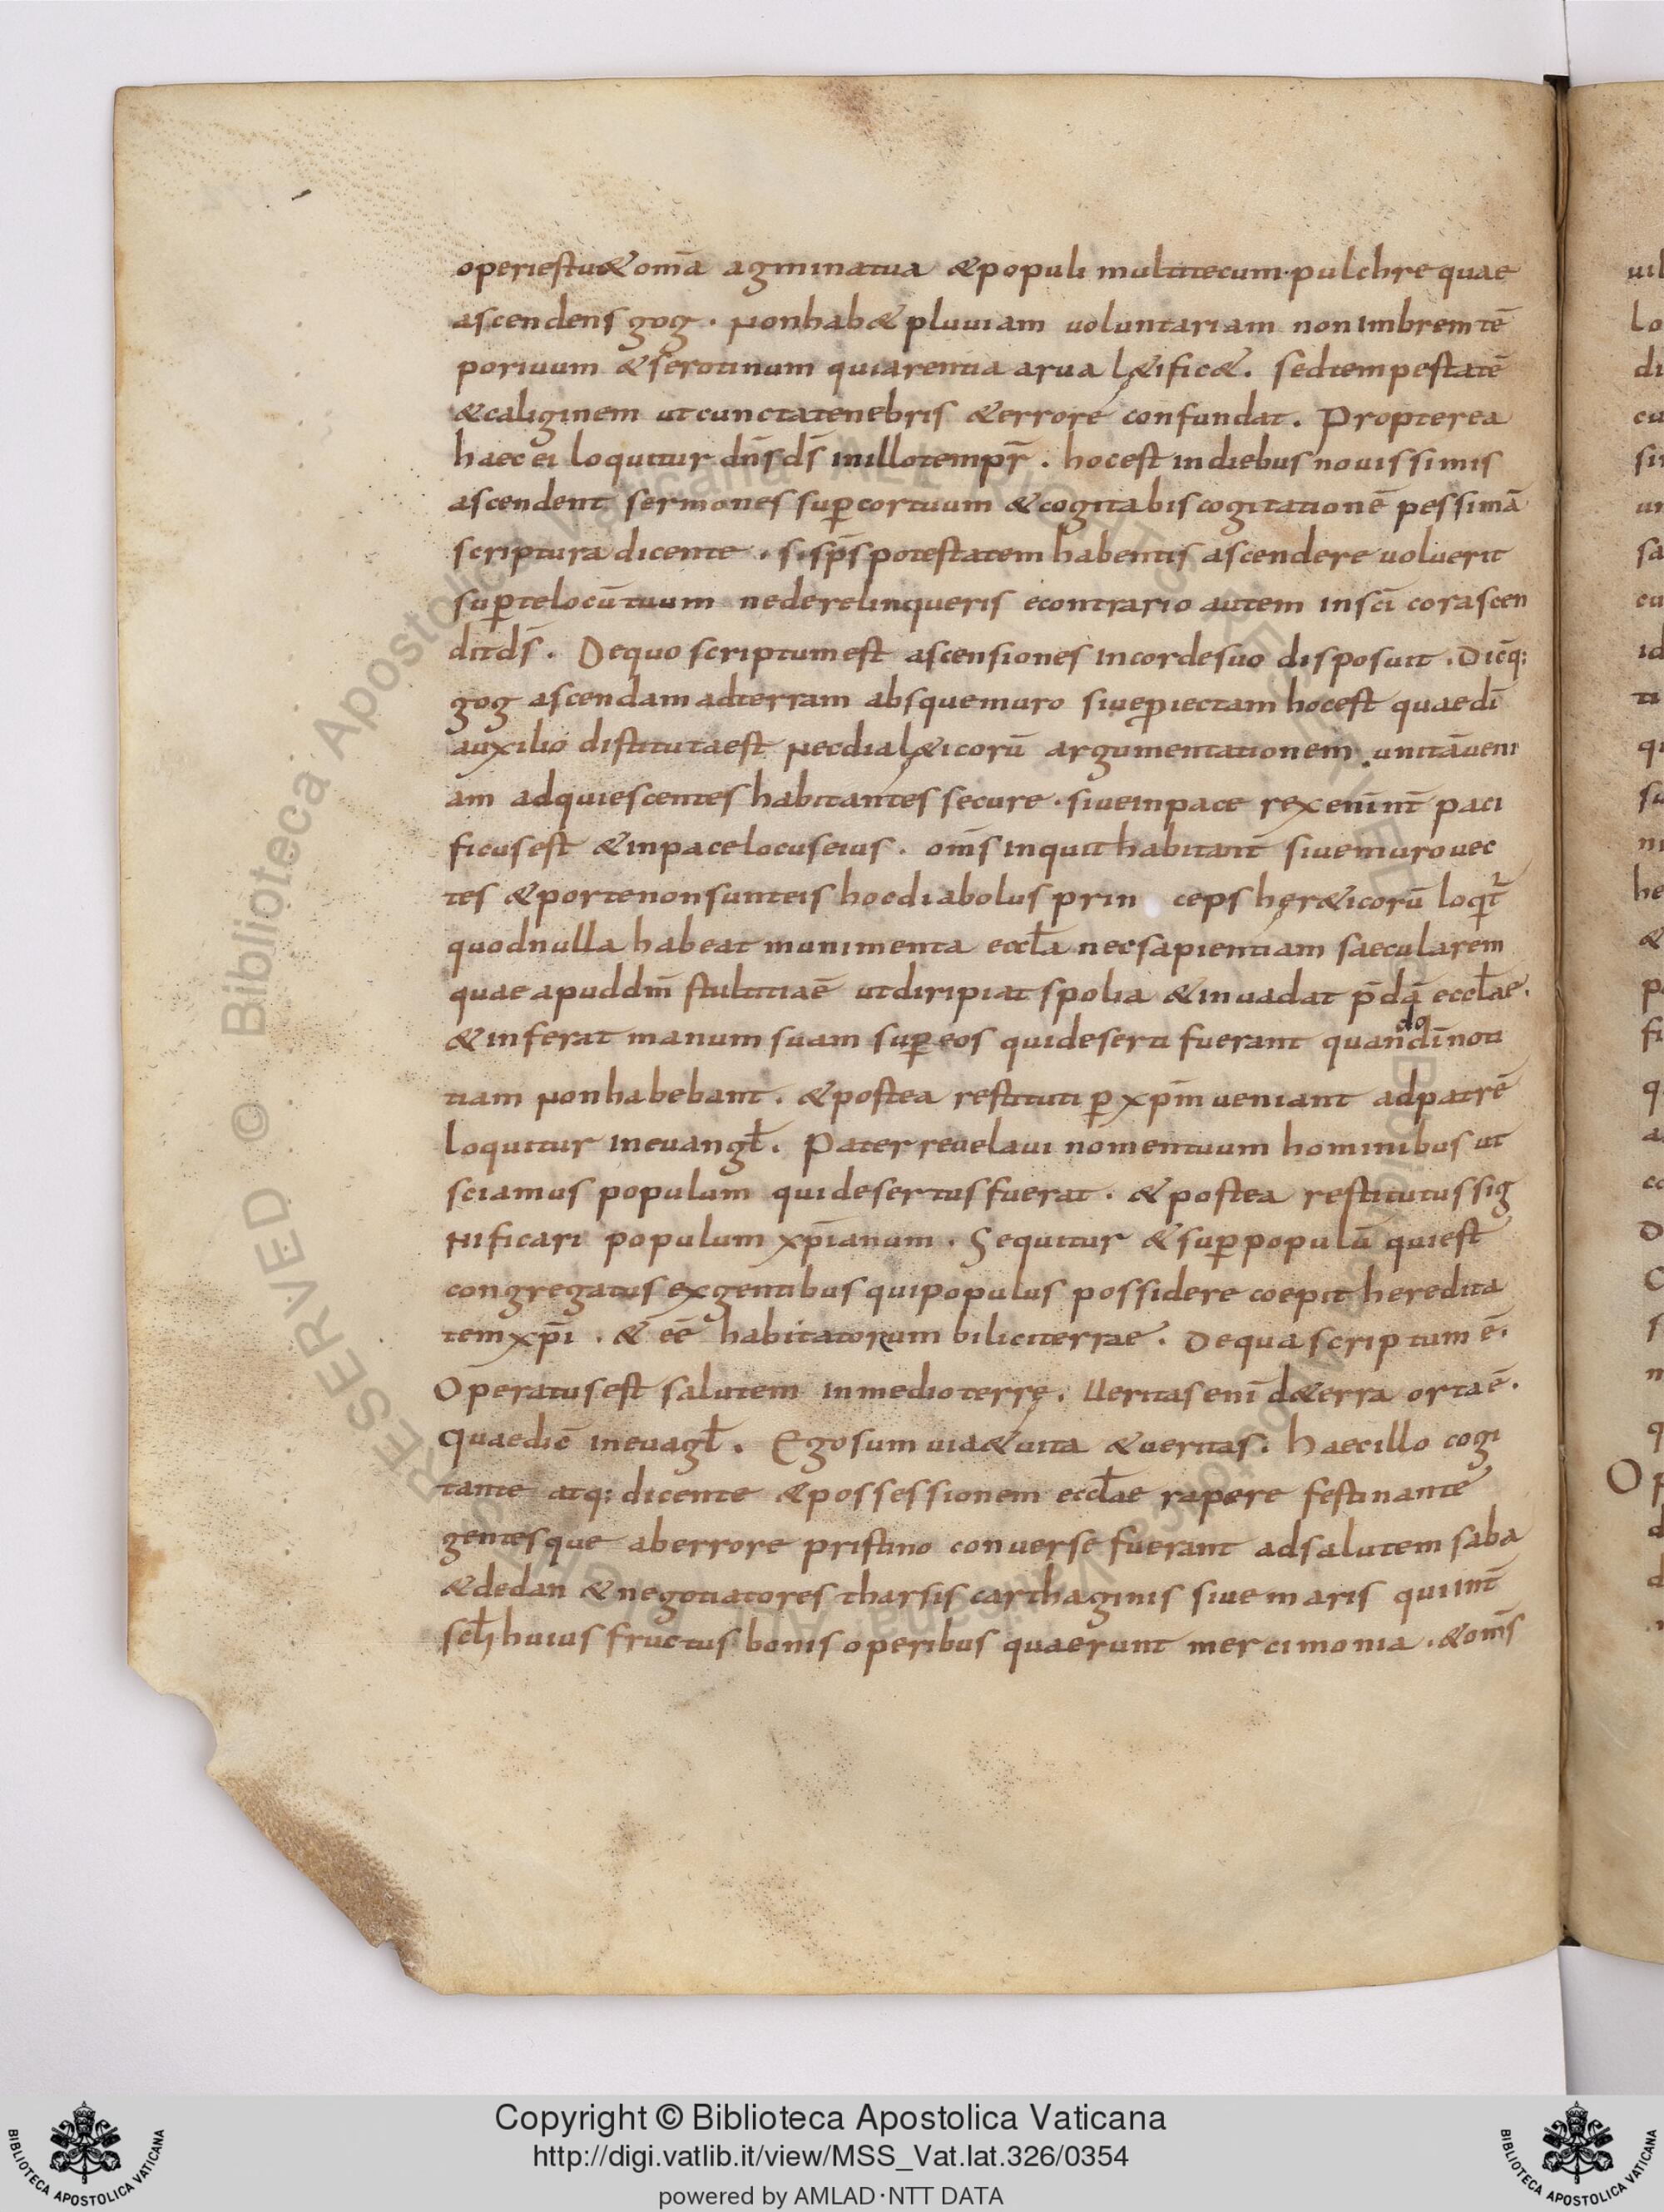 operiestu&om̄a agminatua &populi multitecum·pulchre quae
ascendens gog · Nonhab& pluuiam uoluntariam nonimbremtē
poriuum &serotinum quiarentia arua l&ific&. sedtempestatē
&caliginem utcunctatenebris &errore confundat. Propterea
haec ei loquitur dn̄sds̄ inillotempr̄ . hocest indiebus nouissimis
ascendent sermones sup̄cortuum &cogitabiscogitationē pessimā
scriptura dicente . s. sp̄s potestatem habentis ascendere uoluerit
sup̄telocūtuum nederelinqueris econtrario autem insc̄i corascen
ditds̄ . Dequo scriptumest ascensiones incordesuo disposuit . Dic̄q;
gog ascendam adterram absquemuro siuep̄iectam hocest quaedī
auxilio distitutaest Necdial&icorū argumentationem . unitāueni
am adquiescentes habitantes secure · siueinpace rexenīnt̄ paci
ficusest &inpacelocuseius . om̄s inquit habitant̄ siuemurouec
tes &portenonsunteis hocdiabolus prin ceps her&icorū loqt̄
quodnulla habeat munimenta eccl̄a necsapientiam saecularem
quae apuddm̄ stultitiaē utdiripiat spolia &inuadat p̄dā eccl̄ae.
&inferat manum suam sup̄ eos quideserti fuerant quandīnoti
do
tiam Nonhabebant . &postea restituti p̄ xp̄m ueniant adpatrē
loquitur ineuangl̄. Pater reuelaui nomentuum hominibus ut
sciamus populum quidesertusfuerat . & postea restitutussig
Nificari populum xp̄ianum . Sequitur &sup̄populū quiest
congregatus exgentibus quipopulus possidere coepit heredita
temxp̄i . & eē habitatorum biliciterrae. Dequa scriptum ē.
Operatusest salutem inmedioterrę. Ueritasenī d&erra ortaē.
Quaedic̄ ineuagl̄. Egosum uia&uita &ueritas. haecillo cogi
tante atq; dicente &possessionem eccl̄ae rapere festinante
gentesque aberrore pristino conuerse fuerant adsalutem saba
&dedan &negotiatores tharsis carthaginis siue maris quiint̄
scl̄i huius fructus bonis operibus quaerunt mercimonia . &om̄s
Copyright © Biblioteca Apostolica Vaticana
http://digi.vatlib.it/view/MSS_Vat.lat.326/0354
powered by AMLAD·NTT DATA